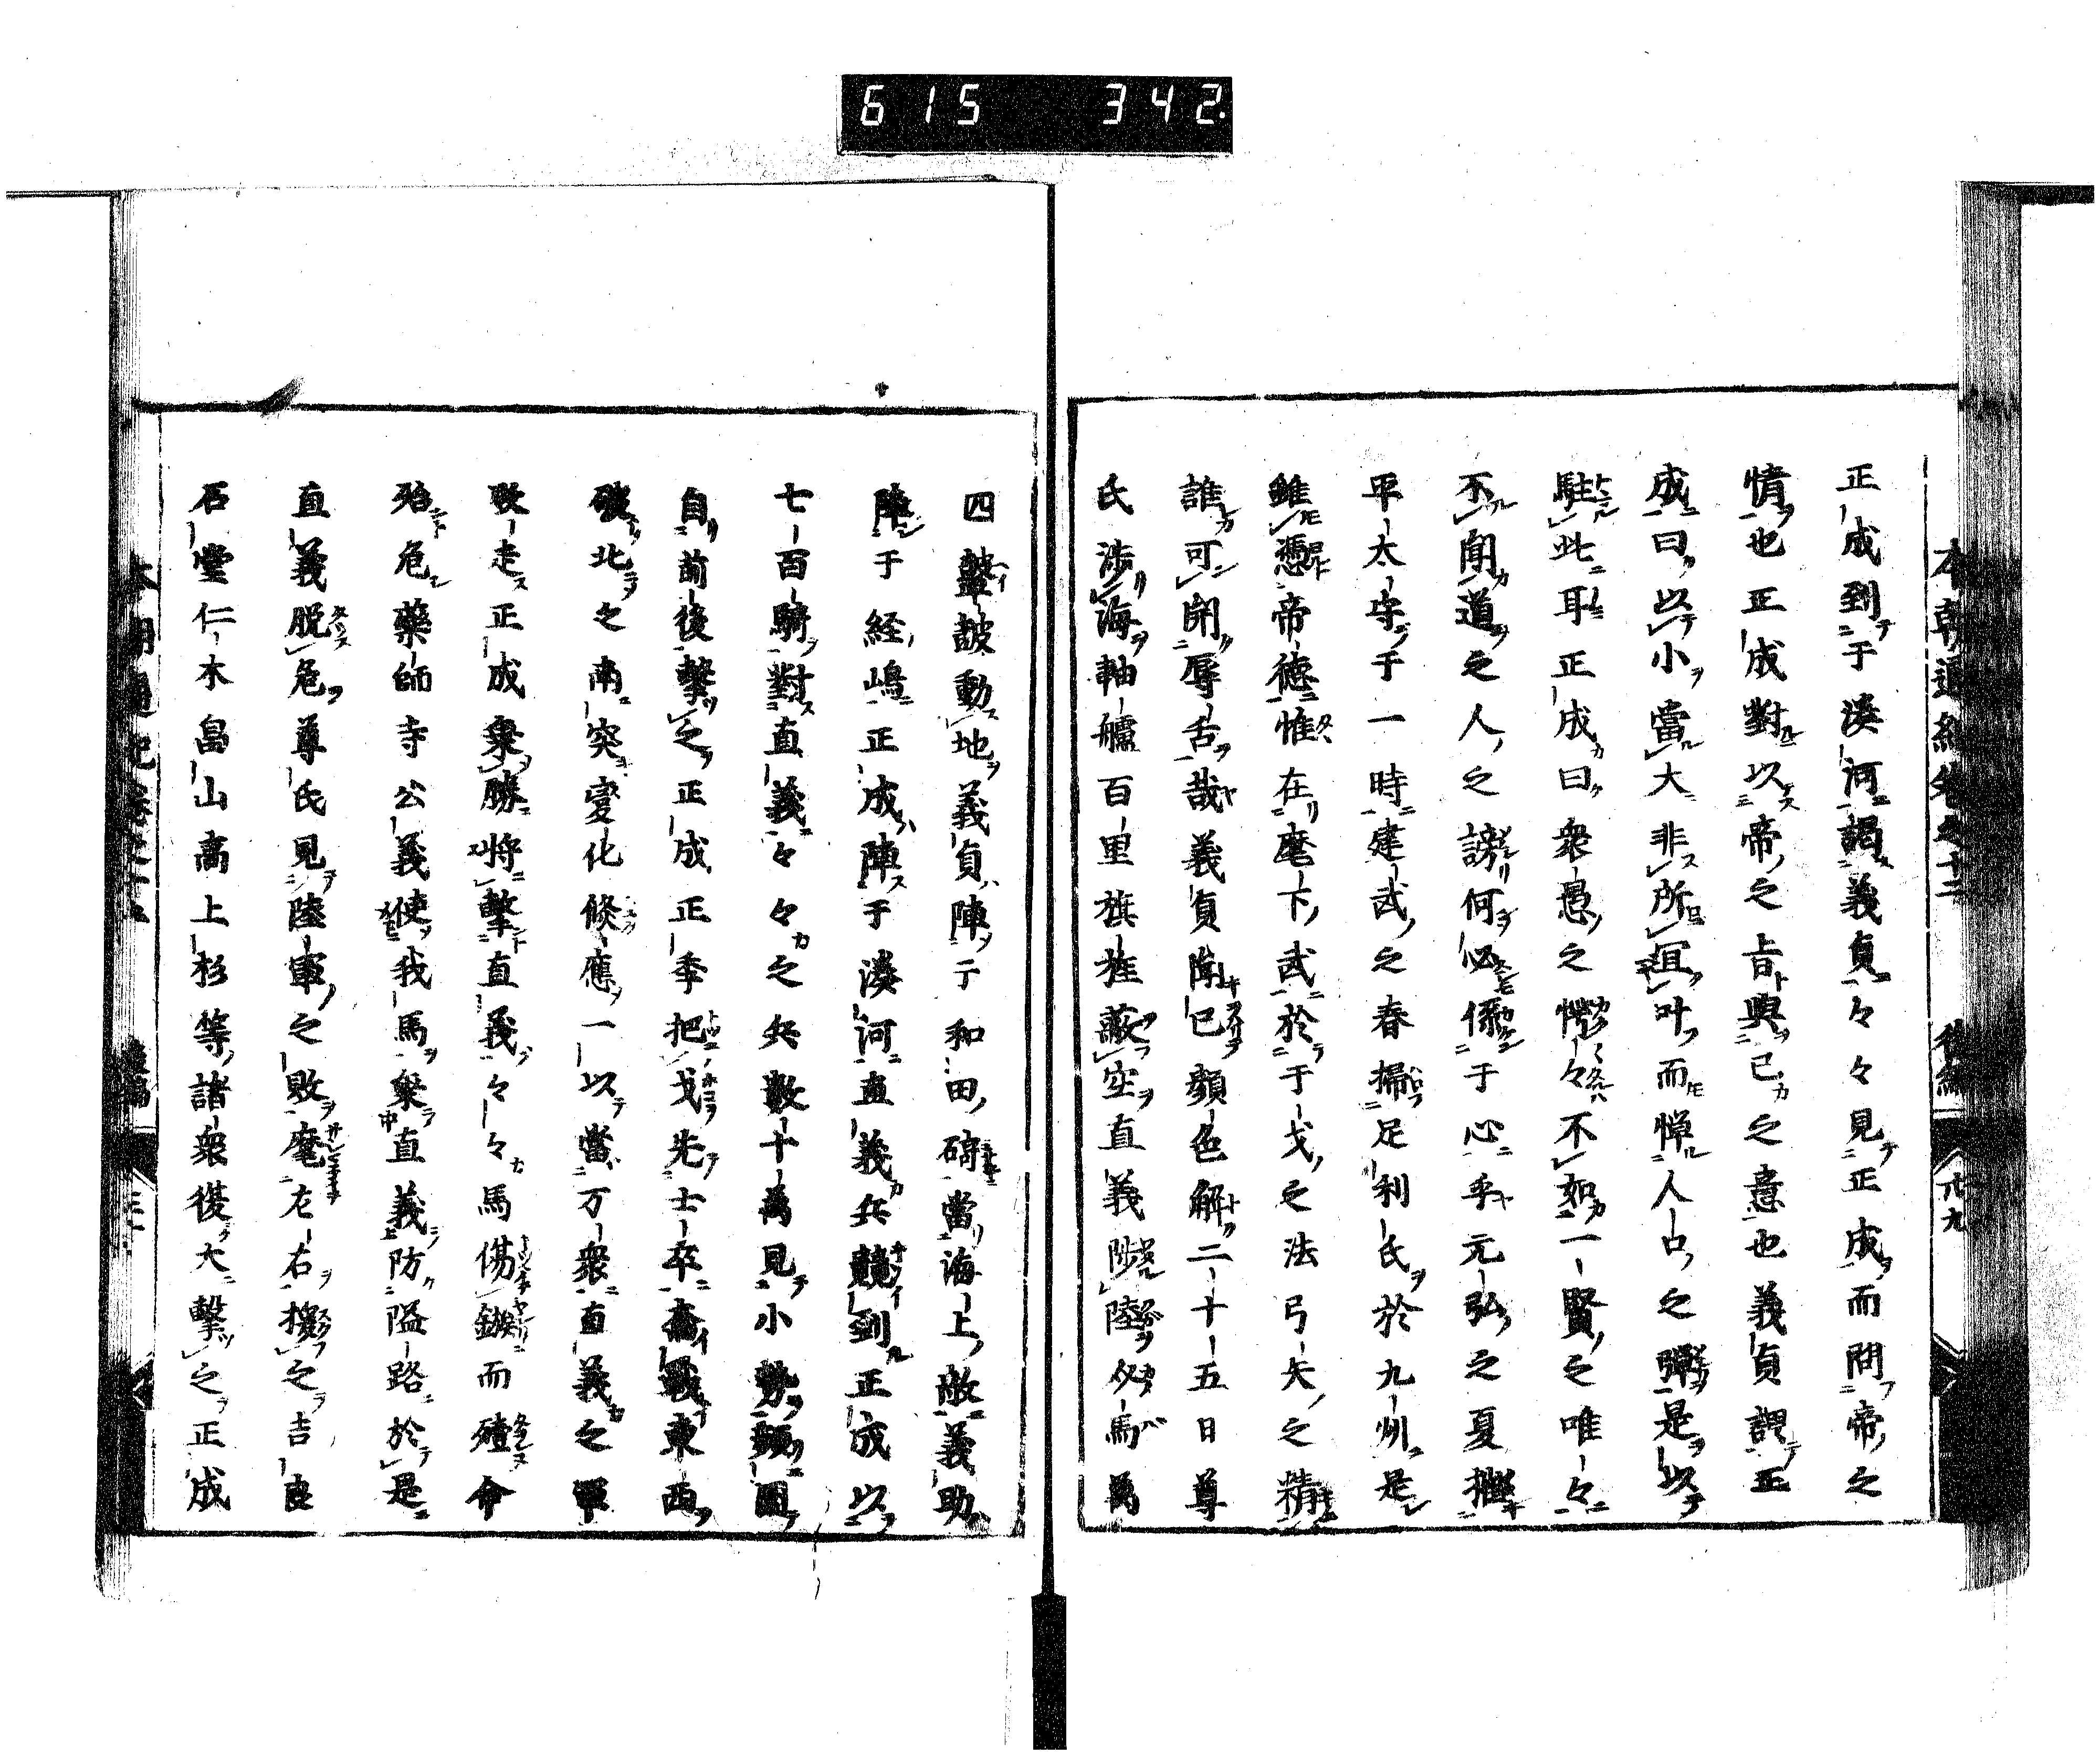 615 342.
本朝通紀巻之十二 後編 廿九
正成到于湊河謁義貞々々見正成而問帝之
情也正成對以帝之旨與已之意也義貞謂正
成曰以小當大非所宜叶而憚人口之彈是以
駐此耳正成曰衆愚之愕々不如一賢之唯々
不聞道之人之謗何必係于心乎元弘之夏
平太守于一時建武之春掃足利氏於九州是
雖憑帝徳惟在麾下武於于戈之法弓矢之精
誰可開辱舌哉義貞 已顔色解二十五日尊
氏渉海軸艫百里旗旌蔽空直義陟陸 馬萬
四鼙皷動地義貞陣于和田碕當海上敵義助
陣于経嶋正成陣于湊河直義兵競到正成以
七百騎對直義々々之兵數十萬見小勢頻圍
自前後撃之正成正季把戈先士卒奮戰東西
破北之南突変化倏應一以當万衆直義之軍
敗走正成棄勝将撃直義々々馬傷鏃而殪命
殆危藥師寺公義使我馬乗直義防隘路於是
直義脱危尊氏見陸軍之敗麾左右援之吉良
石堂仁木畠山高上杉等諸衆復大撃之正成